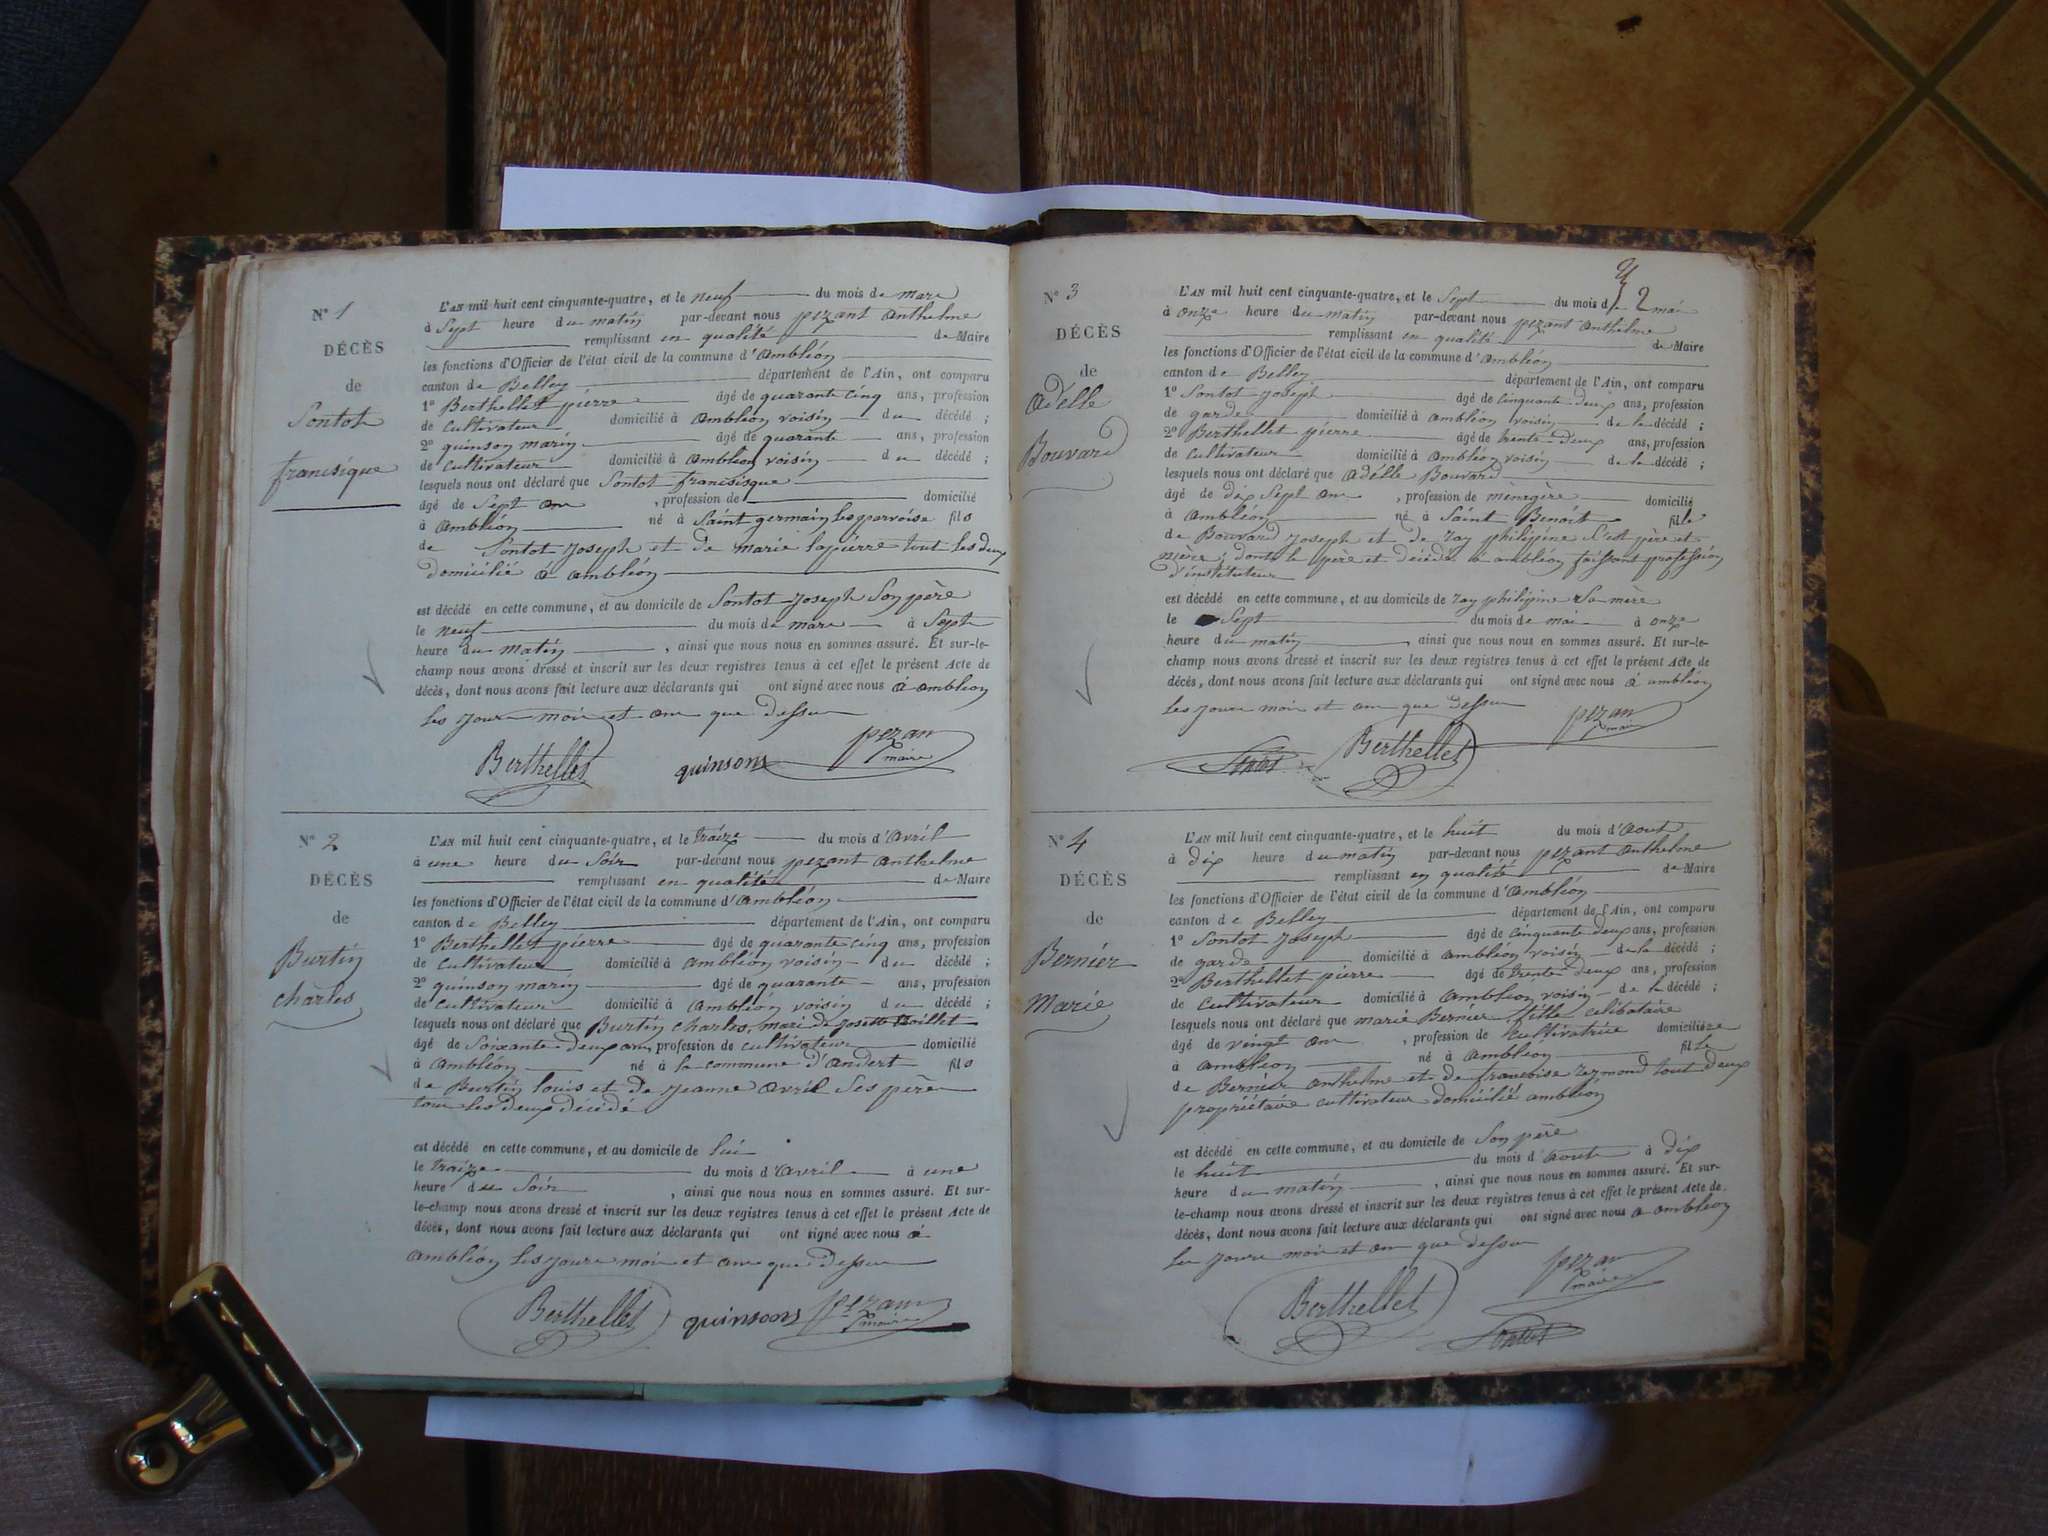 N° 1
DÉCÈS
de
Sontot
francisque
L'AN mil huit cent cinquante-quatre, et le neuf du mois de mars
à Sept heure du matin par-devant nous pezant anthelme
remplissant en qualité de Maire
les fonctions d'Officier de l'état civil de la commune d'ambléon
canton de Belley département de l'Ain, ont comparu
1° Berthellet pierre âgé de quarante cinq ans, profession
de cultivateur domicilié à ambléon voisin du décédé ;
2° quinson marin âgé de quarante ans, profession
de cultivateur domicilié à ambléon voisin du décédé ;
lesquels nous ont déclaré que Sontot francisque
âgé de Sept an , profession de domicilié
à ambléon né à Saint germain les parroise fils
de Sontot Joseph et de marie lapierre tout les deux
domicilié à ambléon
est décédé en cette commune, et au domicile de Sontot Joseph Son père
le neuf du mois de mars à Sept
heure du matin , ainsi que nous nous en sommes assuré. Et sur-le-
champ nous avons dressé et inscrit sur les deux registres tenus à cet effet le présent Acte de
décès, dont nous avons fait lecture aux déclarants qui ont signé avec nous à ambléon
les jours mois et an que dessus
Berthellet quinsons pezan
maire
N° 2
DÉCÈS
de
Burtin
charles
L'AN mil huit cent cinquante-quatre, et le traize du mois d'avril
à une heure du Soir par-devant nous pezant anthelme
remplissant en qualité de Maire
les fonctions d'Officier de l'état civil de la commune d'ambléon
canton de Belley département de l'Ain, ont comparu
1° Berthellet pierre âgé de quarante cinq ans, profession
de cultivateur domicilié à ambléon voisin du décédé ;
2° quinson marin âgé de quarante ans, profession
de cultivateur domicilié à ambléon voisin du décédé ;
lesquels nous ont déclaré que Burtin charles, mari de Josette
âgé de Soixante deux an, profession de cultivateur domicilié
à ambléon né à la commune d'andert fils
de Burtin louis et de Jeanne avril Ses père
tous les deux décédé
est décédé en cette commune, et au domicile de lui
le traize du mois d'avril à une
heure du Soir , ainsi que nous nous en sommes assuré. Et sur-
le-champ nous avons dressé et inscrit sur les deux registres tenus à cet effet le présent Acte de
décès, dont nous avons fait lecture aux déclarants qui ont signé avec nous à
ambléon les jours mois et an que dessus
Berthellet quinsons pezan
maire
2
N° 3
DÉCÈS
de
adélle
Bouvard
L'AN mil huit cent cinquante-quatre, et le Sept du mois de mai
à onze heure du matin par-devant nous pezant anthelme
remplissant en qualité de Maire
les fonctions d'Officier de l'état civil de la commune d'ambléon
canton de Belley département de l'Ain, ont comparu
1° Sontot Joseph âgé de cinquante deux ans, profession
de garde domicilié à ambléon voisin de la décédé ;
2° Berthellet pierre âgé de trente deux ans, profession
de cultivateur domicilié à ambléon voisin de la décédé ;
lesquels nous ont déclaré que adélle Bouvard
âgé de dix Sept an , profession de ménagère domicilié
à ambléon né à Saint Benoit fille
de Bouvard Joseph et de ray philipine S'est père et
mère ; dont le père et décédé à ambléon faissant profession
d'instituteur
est décédé en cette commune, et au domicile de ray philipine Sa mère
le Sept du mois de mai à onze
heure du matin , ainsi que nous nous en sommes assuré. Et sur-le-
champ nous avons dressé et inscrit sur les deux registres tenus à cet effet le présent Acte de
décès, dont nous avons fait lecture aux déclarants qui ont signé avec nous à ambléon
les jours mois et an que dessus
Sontot Berthellet pezan
maire
N° 4
DÉCÈS
de
Bernier
Marie
L'AN mil huit cent cinquante-quatre, et le huit du mois d'aout
à dix heure du matin par-devant nous pezant anthelme
remplissant en qualité de Maire
les fonctions d'Officier de l'état civil de la commune d'ambléon
canton de Belley département de l'Ain, ont comparu
1° Sontot Joseph âgé de cinquante deux ans, profession
de garde domicilié à ambléon voisin de la décédé ;
2° Berthellet pierre âgé de trente deux ans, profession
de cultivateur domicilié à ambléon voisin de la décédé ;
lesquels nous ont déclaré que marie Bernier fille celibataire
âgé de vingt an , profession de cultivatrice domiciliée
à ambléon né à ambléon fille
de Bernier anthelme et de francoise reymond tout deux
propriétaire cultivateur domicilié ambléon
est décédé en cette commune, et au domicile de Son père
le huit du mois d'aout à dix
heure du matin , ainsi que nous nous en sommes assuré. Et sur-
le-champ nous avons dressé et inscrit sur les deux registres tenus à cet effet le présent Acte de
décès, dont nous avons fait lecture aux déclarants qui ont signé avec nous à ambléon
les jours mois et an que dessus
Berthellet pezan
maire
Sontot